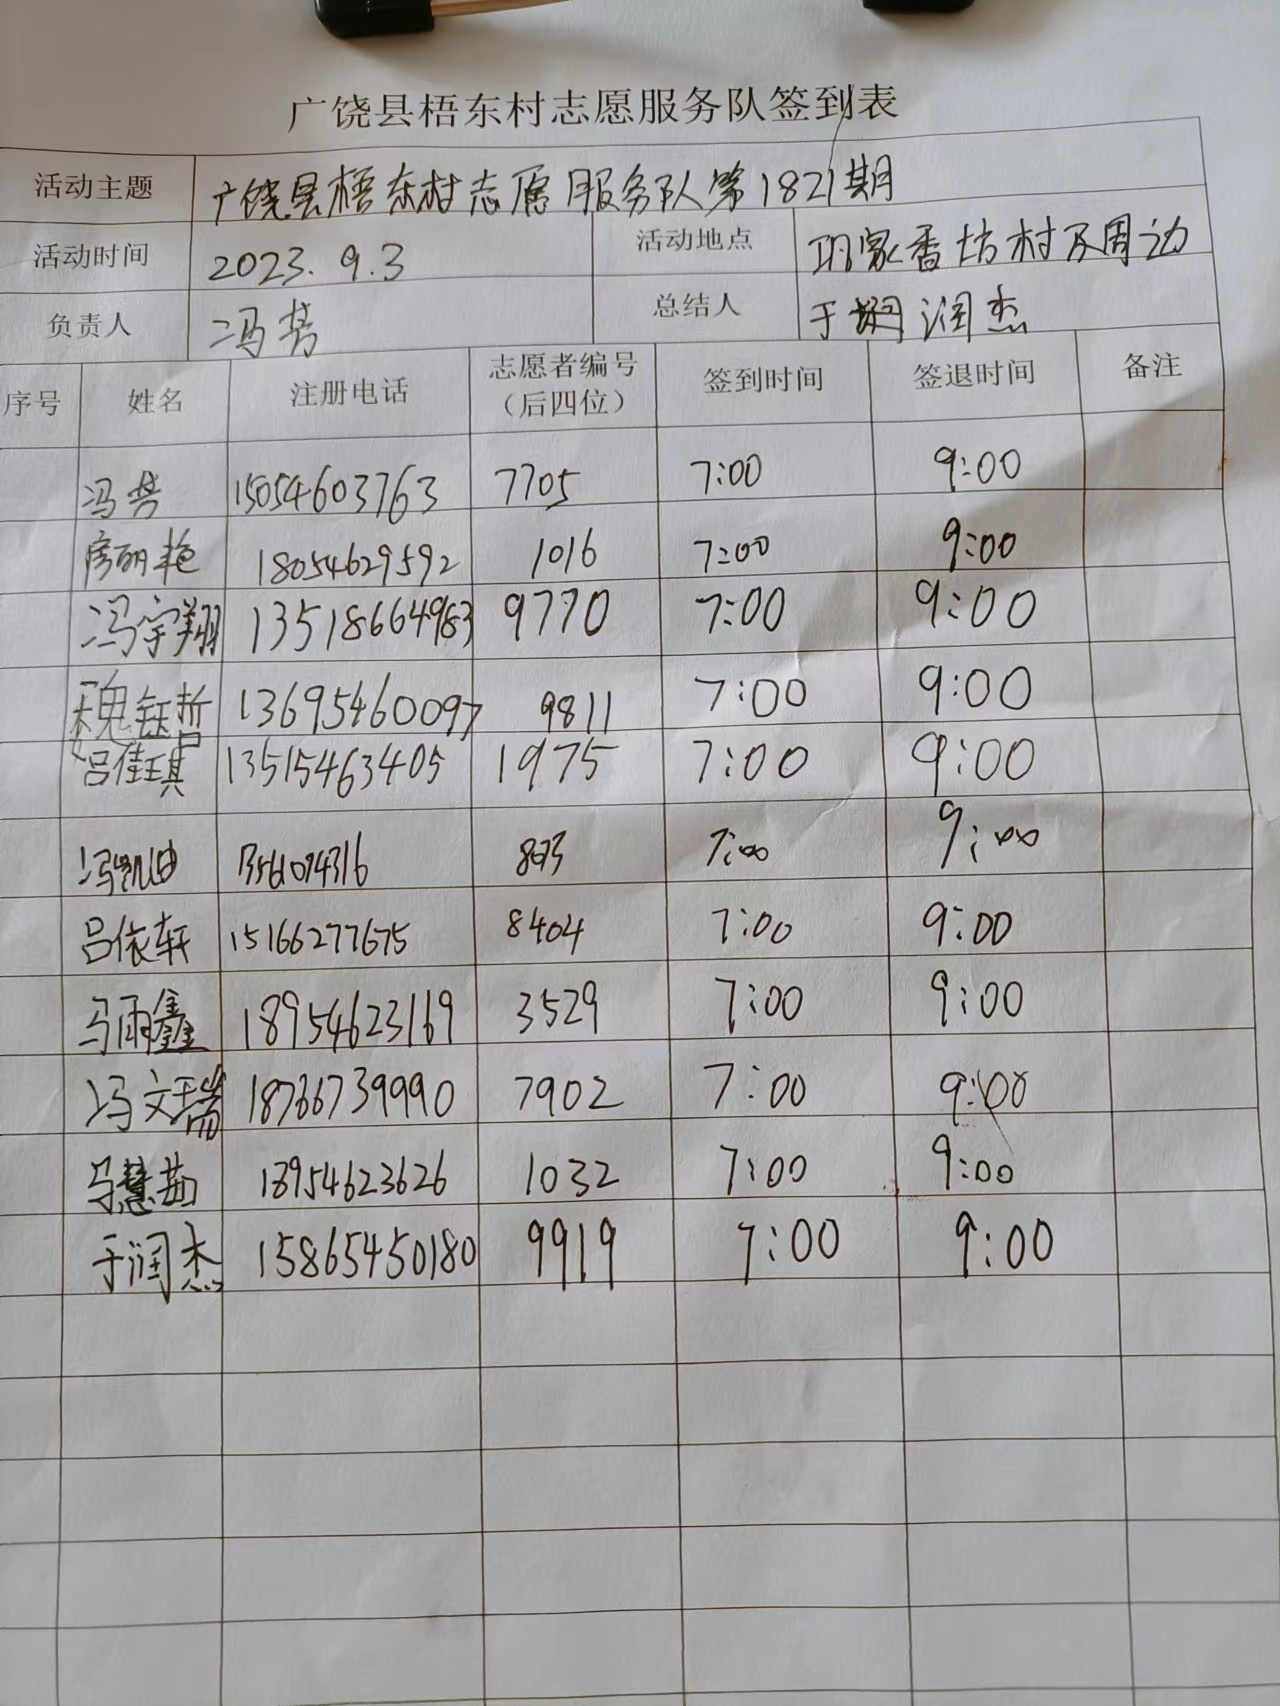 广饶县梧东村志愿服务队签到表
活动主题 广饶县梧东村志愿服务队第1821期
活动时间 2023.9.3 活动地点 香坊村及周边
负责人 冯芳 总结人 于润杰
序号 姓名 注册电话 志愿者编号（后四位） 签到时间 签退时间 备注
冯芳 15054603763 7705 7:00 9:00
房丽艳 18054629592 1016 7:00 9:00
冯宇翔 13518664983 9770 7:00 9:00
魏钰哲 13695460097 9811 7:00 9:00
吕佳琪 13515463405 1975 7:00 9:00
冯凯迪 7:00 9:00
吕依轩 15166277675 8404 7:00 9:00
马雨鑫 18954623169 3529 7:00 9:00
冯文瑞 18766739990 7902 7:00 9:00
马慧茹 18954623626 1032 7:00 9:00
于润杰 15865450180 9919 7:00 9:00